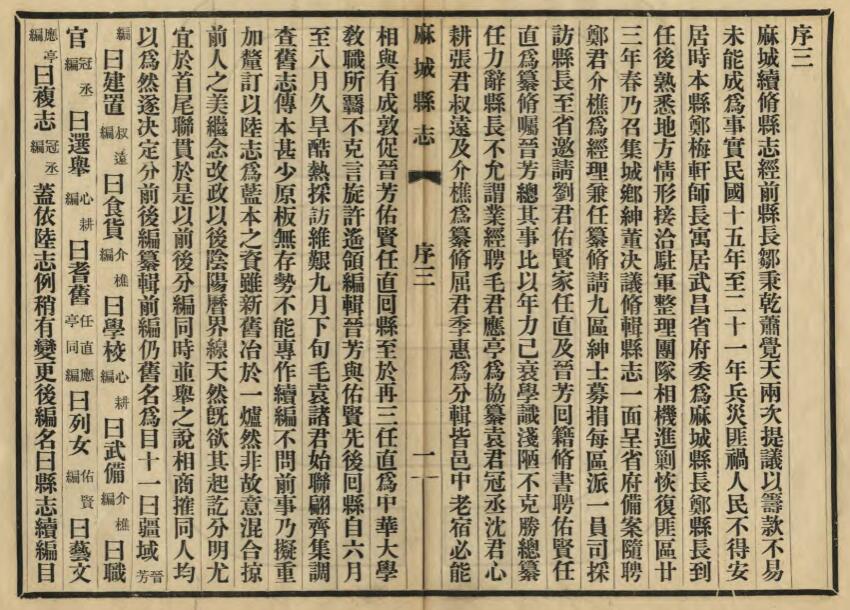 序三
麻城續脩縣志經前縣長鄒秉乾蕭覺天兩次提議以籌款不易
未能成爲事實民國十五年至二十一年兵災匪禍人民不得安
居時本縣鄭梅軒師長寓居武昌省府委爲麻城縣長鄭縣長到
任後熟悉地方情形接洽駐軍整理團隊相機進剿恢復匪區廿
三年春乃召集城鄉紳董决議脩輯縣志一面呈省府備案隨聘
鄭君介樵爲經理兼任纂脩請九區紳士募捐每區派一員司採
訪縣長至省邀請劉君佑賢家任直及晉芳回籍脩書聘佑賢任
直爲纂脩囑晉芳總其事比以年力已衰學識淺陋不克勝總纂
任力辭縣長不允謂業經聘毛君應亭爲協纂袁君冠丞沈君心
耕張君叔遠及介樵爲纂脩屈君季惠爲分輯皆邑中老宿必能
麻城縣志 序三 一
相與有成敦促晉芳佑賢任直回縣至於再三任直爲中華大學
敎職所覊不克言旋許遙領編輯晉芳與佑賢先後回縣自六月
至八月久旱酷熱採訪維艱九月下旬毛袁諸君始聯翩齊集調
查舊志傳本甚少原板無存勢不能專作續編不問前事乃擬重
加釐訂以陸志爲藍本之資雖新舊冶於一爐然非故意混合掠
前人之美繼念改政以後陰陽曆界線天然旣欲其起訖分明尤
宜於首尾聯貫於是以前後分編同時並舉之說相商搉同人均
以爲然遂决定分前後編纂輯前編仍舊名爲目十一曰疆域晉芳
編曰建置叔遠編曰食貨介樵編曰學校心耕編曰武備介樵編曰職
官冠丞編曰選舉心耕編曰耆舊任直應亭同編曰列女佑賢編曰藝文
應亭編曰複志冠丞編蓋依陸志例稍有變更後編名曰縣志續編目